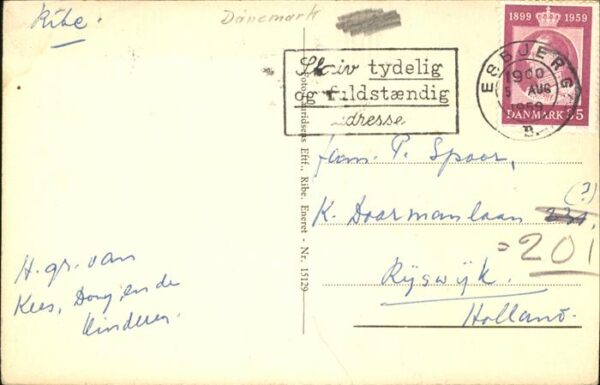 Ribe.
Dänemark
Skriv tydelig
og fuldstændig
adresse
1899 1959
DANMARK 35
ESBJERG
1900
5 AUG
1959
B.
Eftf., Ribe. Eneret - Nr. 15129
Fam. P. Spoor,
K. Doormanlaan 231, (?)
= 201
Rijswijk.
Holland.
H. gr. van
Kees, Dony, en de
Kinderen.